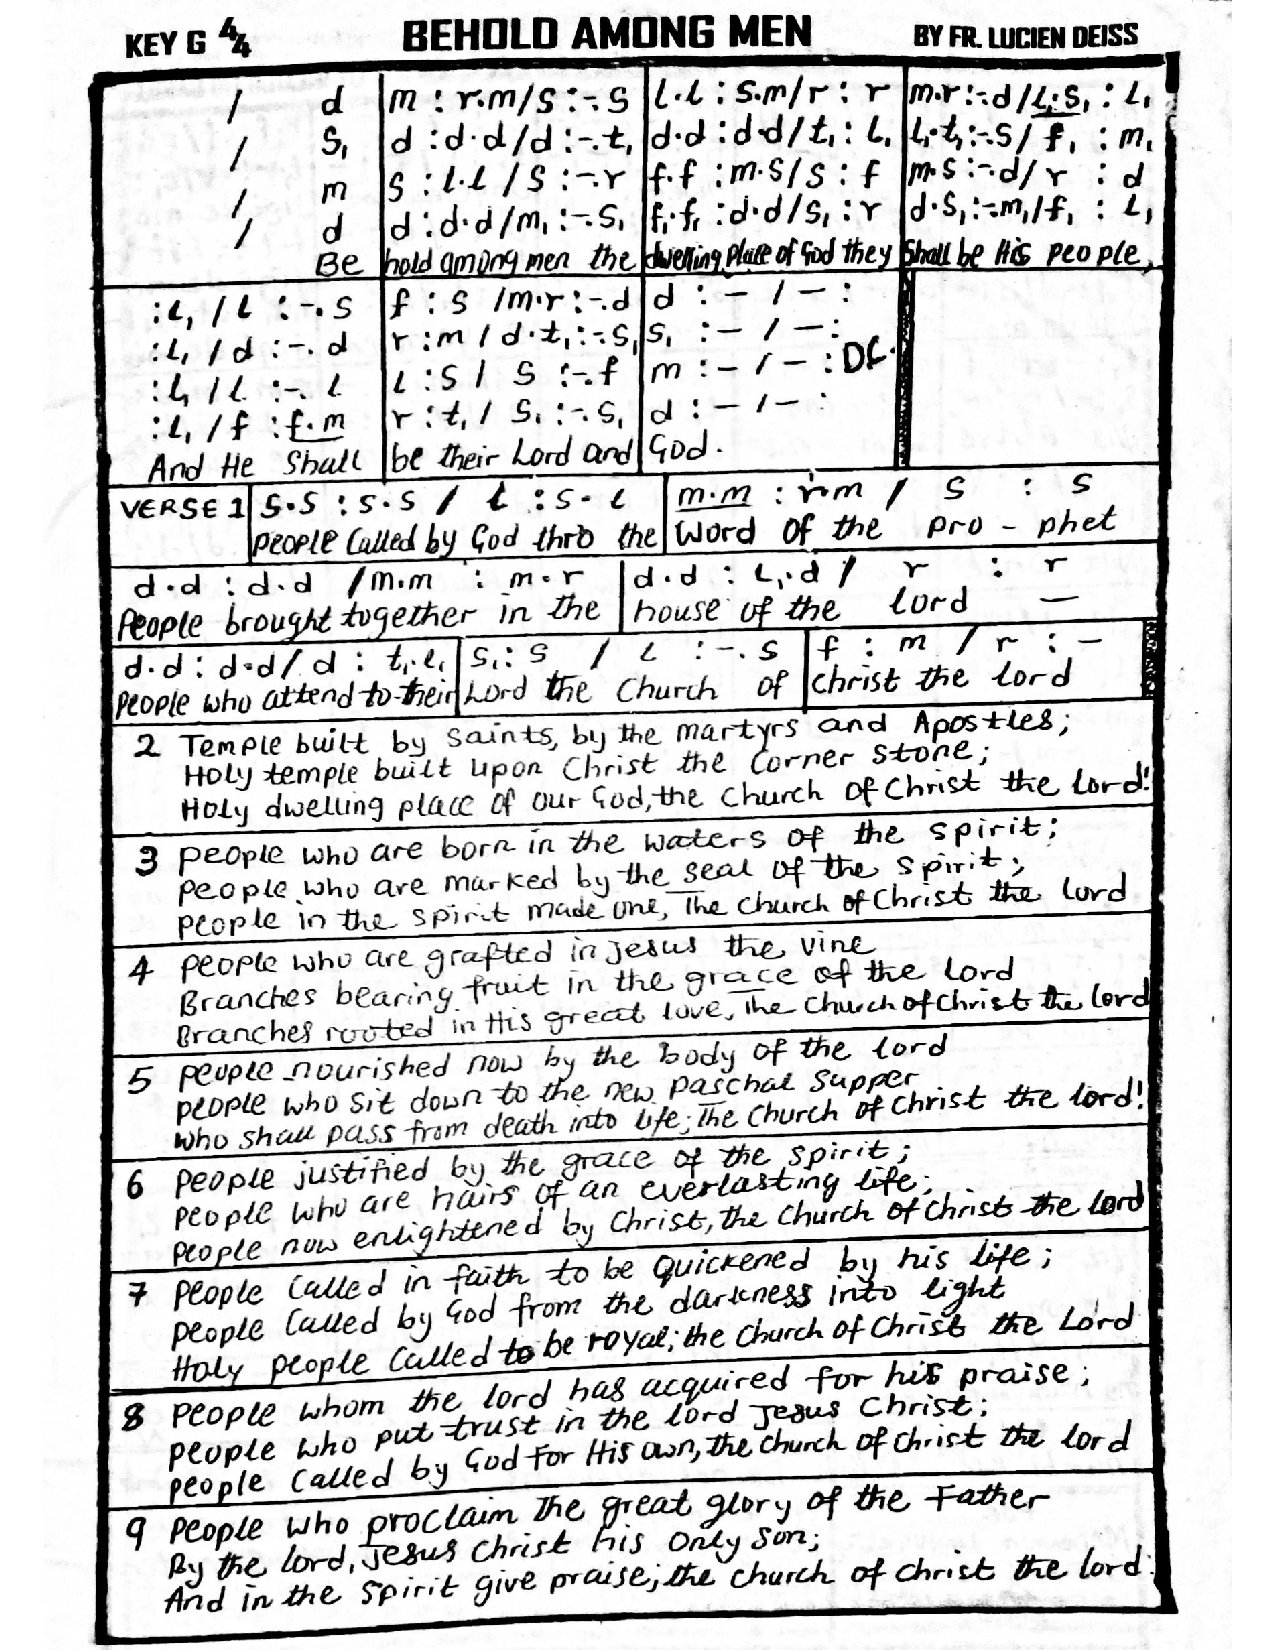 KEY G 4/4 BEHOLD AMONG MEN BY FR. LUCIEN DEISS
/ d | m : r.m / s : -. s | l.l : s.m / r : r | m.r : -.d / l₁.s₁ : l₁
/ s₁ | d : d.d / d : -. t₁ | d.d : d.d / t₁ : l₁ | l₁.t₁ : -.s / f₁ : m₁
/ m | s : l.l / s : -.r | f.f : m.s / s : f | m.s : -.d / r : d
/ d | d : d.d / m₁ : -.s₁ | f₁.f₁ : d.d / s₁ : r | d.s₁ : -.m₁ / f₁ : l₁
Be hold among men the dwelling place of God they shall be His people,
: l₁ / l : -. s | f : s / m.r : -.d | d : - / - :
: l₁ / d : -. d | r : m / d.t₁ : -.s₁ | s₁ : - / - :
: l₁ / l : -. l | l : s / s : -.f | m : - / - : DC.
: l₁ / f : f.m | r : t₁ / s₁ : -.s₁ | d : - / - :
And He shall be their Lord and God.
VERSE 1 | s.s : s.s / l : s.l | m.m : r.m / s : s
people called by God thro the word of the pro - phet
d.d : d.d / m.m : m.r | d.d : l₁.d / r : r
People brought together in the house of the lord —
d.d : d.d / d : t₁.l₁ | s₁ : s / l : -. s | f : m / r : -
people who attend to their Lord the Church of christ the lord
2 Temple built by saints, by the martyrs and Apostles;
Holy temple built upon Christ the Corner stone;
Holy dwelling place of our God, the church of Christ the lord!
3 people who are born in the waters of the spirit;
people who are marked by the seal of the spirit;
people in the spirit made one, The church of Christ the lord
4 people who are grafted in Jesus the vine
Branches bearing fruit in the grace of the Lord
Branches rooted in His great love, The church of Christ the lord
5 people nourished now by the body of the lord
people who sit down to the new paschal supper
who shall pass from death into life; The church of christ the lord!
6 people justified by the grace of the spirit;
people who are hairs of an everlasting life;
people now enlightened by Christ, the church of christ the lord
7 people called in faith to be quickened by his life;
people called by God from the darkness into light
Holy people called to be royal; the church of Christ the Lord
8 people whom the lord has acquired for his praise;
people who put trust in the lord Jesus Christ;
people called by God for His own, the church of christ the lord
9 people who proclaim The great glory of the Father
By the lord, Jesus christ his only son;
And in the spirit give praise; the church of christ the lord.